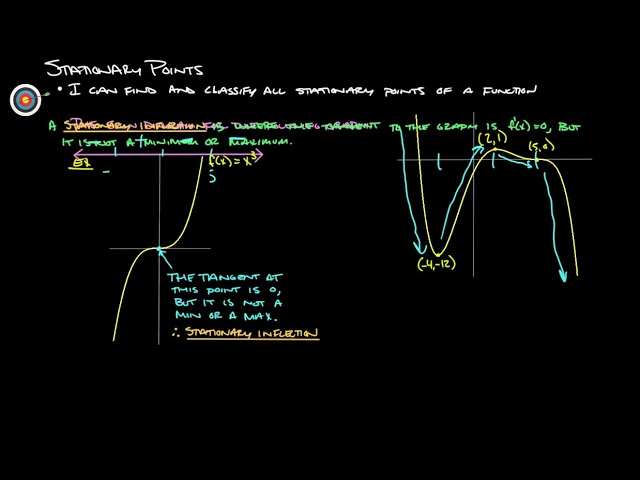 STATIONARY POINTS
• I CAN FIND AND CLASSIFY ALL STATIONARY POINTS OF A FUNCTION
A STATIONARY INFLECTION IS WHERE THE TO THE GRAPH IS f'(x)=0, BUT
IT IS NOT A MINIMUM OR MAXIMUM.
EX f(x)=x³
(2,1)
(5,0)
(-4,-12)
THE TANGENT AT
THIS POINT IS 0,
BUT IT IS NOT A
MIN OR A MAX.
∴ STATIONARY INFLECTION